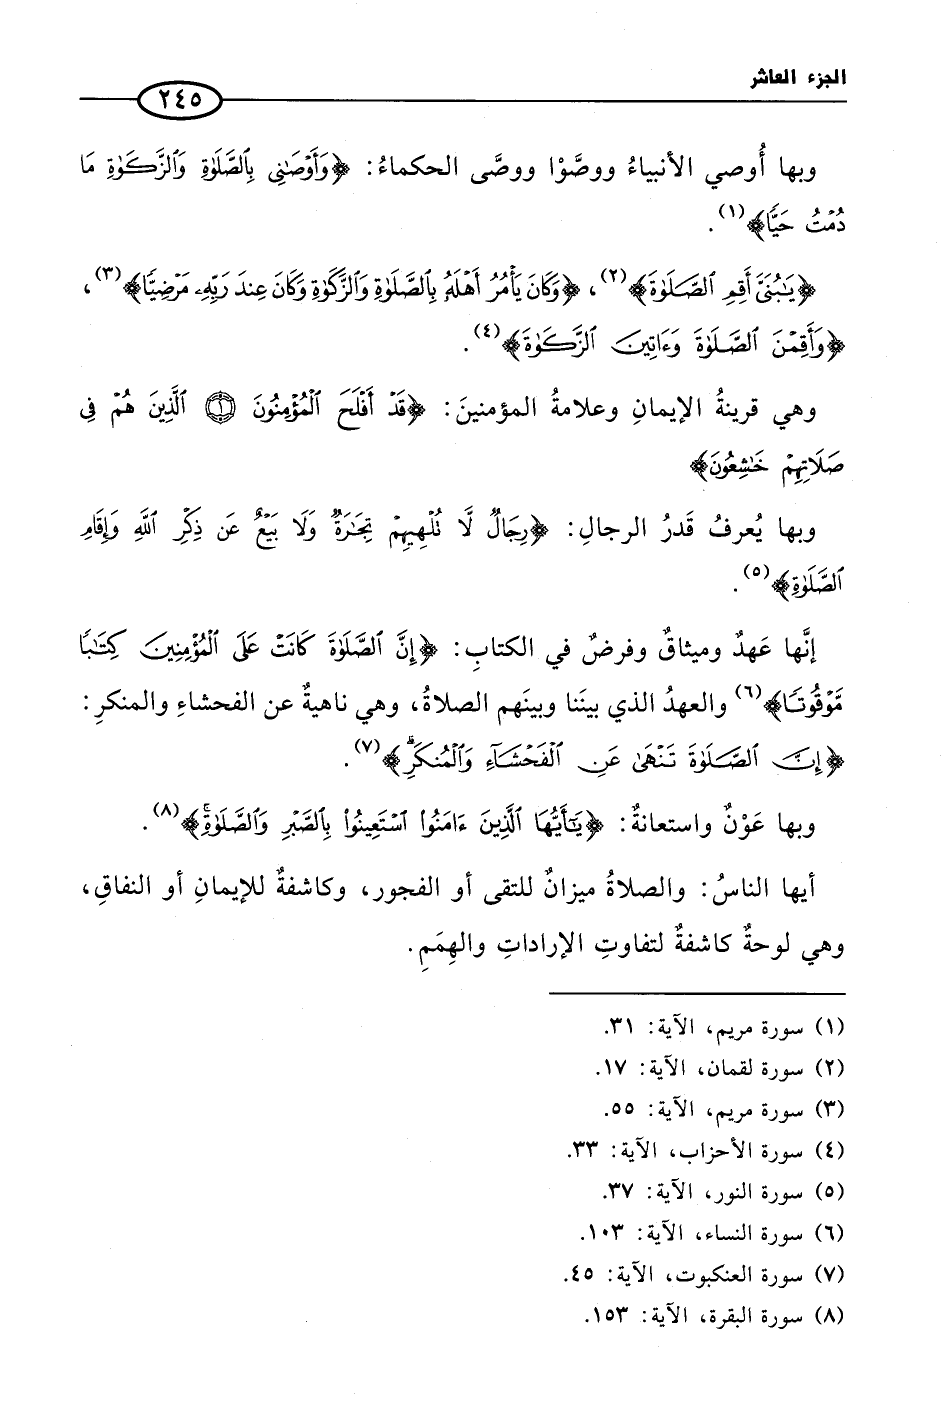 الجزء العاشر
٢٤٥
وبها أُوصي الأنبياءُ ووصَّوْا ووصَّى الحكماءُ: ﴿وَأَوْصَٰنِى بِٱلصَّلَوٰةِ وَٱلزَّكَوٰةِ مَا
دُمْتُ حَيًّا﴾(١).
﴿يَٰبُنَىَّ أَقِمِ ٱلصَّلَوٰةَ﴾(٢)، ﴿وَكَانَ يَأْمُرُ أَهْلَهُۥ بِٱلصَّلَوٰةِ وَٱلزَّكَوٰةِ وَكَانَ عِندَ رَبِّهِۦ مَرْضِيًّا﴾(٣)،
﴿وَأَقِمْنَ ٱلصَّلَوٰةَ وَءَاتِينَ ٱلزَّكَوٰةَ﴾(٤).
وهي قرينةُ الإيمانِ وعلامةُ المؤمنينَ: ﴿قَدْ أَفْلَحَ ٱلْمُؤْمِنُونَ ۝١ ٱلَّذِينَ هُمْ فِى
صَلَاتِهِمْ خَٰشِعُونَ﴾
وبها يُعرفُ قَدرُ الرجالِ: ﴿رِجَالٌ لَّا تُلْهِيهِمْ تِجَٰرَةٌ وَلَا بَيْعٌ عَن ذِكْرِ ٱللَّهِ وَإِقَامِ
ٱلصَّلَوٰةِ﴾(٥).
إنَّها عَهدٌ وميثاقٌ وفرضٌ في الكتابِ: ﴿إِنَّ ٱلصَّلَوٰةَ كَانَتْ عَلَى ٱلْمُؤْمِنِينَ كِتَٰبًا
مَّوْقُوتًا﴾(٦) والعهدُ الذي بينَنا وبينَهم الصلاةُ، وهي ناهيةٌ عن الفحشاءِ والمنكرِ:
﴿إِنَّ ٱلصَّلَوٰةَ تَنْهَىٰ عَنِ ٱلْفَحْشَآءِ وَٱلْمُنكَرِ ۗ﴾(٧).
وبها عَوْنٌ واستعانةٌ: ﴿يَٰٓأَيُّهَا ٱلَّذِينَ ءَامَنُوا۟ ٱسْتَعِينُوا۟ بِٱلصَّبْرِ وَٱلصَّلَوٰةِ ۚ﴾(٨).
أيها الناسُ: والصلاةُ ميزانٌ للتقى أو الفجور، وكاشفةٌ للإيمانِ أو النفاقِ،
وهي لوحةٌ كاشفةٌ لتفاوتِ الإراداتِ والهِمَمِ.
(١) سورة مريم، الآية: ٣١.
(٢) سورة لقمان، الآية: ١٧.
(٣) سورة مريم، الآية: ٥٥.
(٤) سورة الأحزاب، الآية: ٣٣.
(٥) سورة النور، الآية: ٣٧.
(٦) سورة النساء، الآية: ١٠٣.
(٧) سورة العنكبوت، الآية: ٤٥.
(٨) سورة البقرة، الآية: ١٥٣.